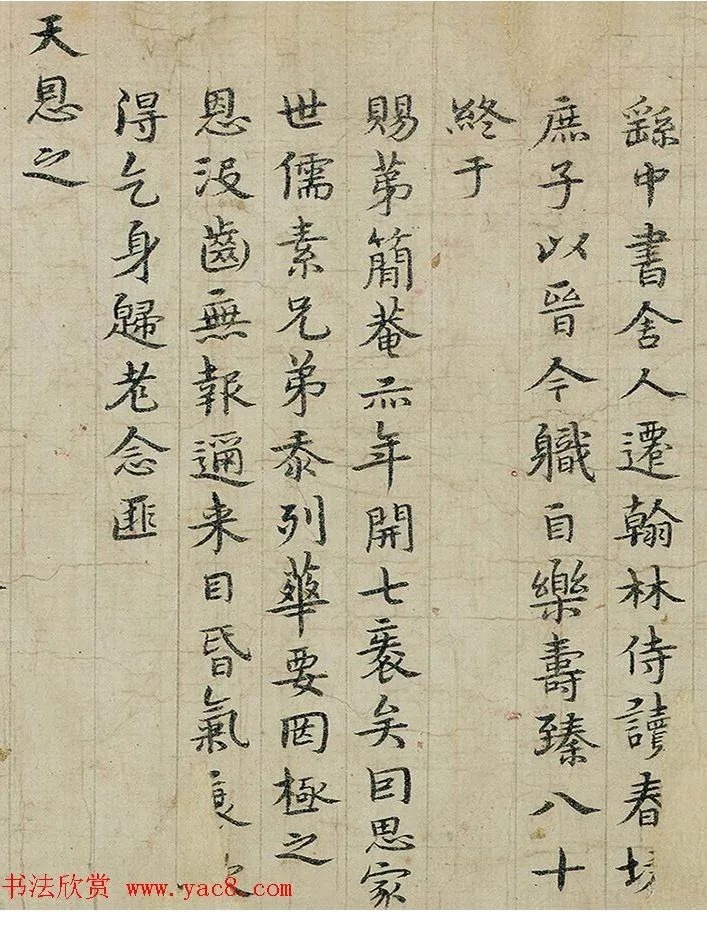 繇中書舍人遷翰林侍讀春坊
庶子以晉今職自樂壽臻八十
終于
賜第簡菴亦年開七袠矣回思家
世儒素兄弟忝列華要罔極之
恩沒齒無報邇来目昏氣衰
得乞身歸老念匪
天恩之
书法欣赏 www.yac8.com